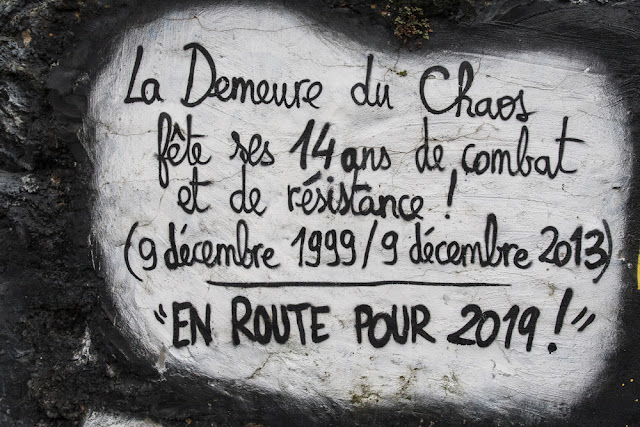 La Demeure du Chaos
fête ses 14 ans de combat
et de résistance !
(9 décembre 1999 / 9 décembre 2013)
"EN ROUTE POUR 2019 !"